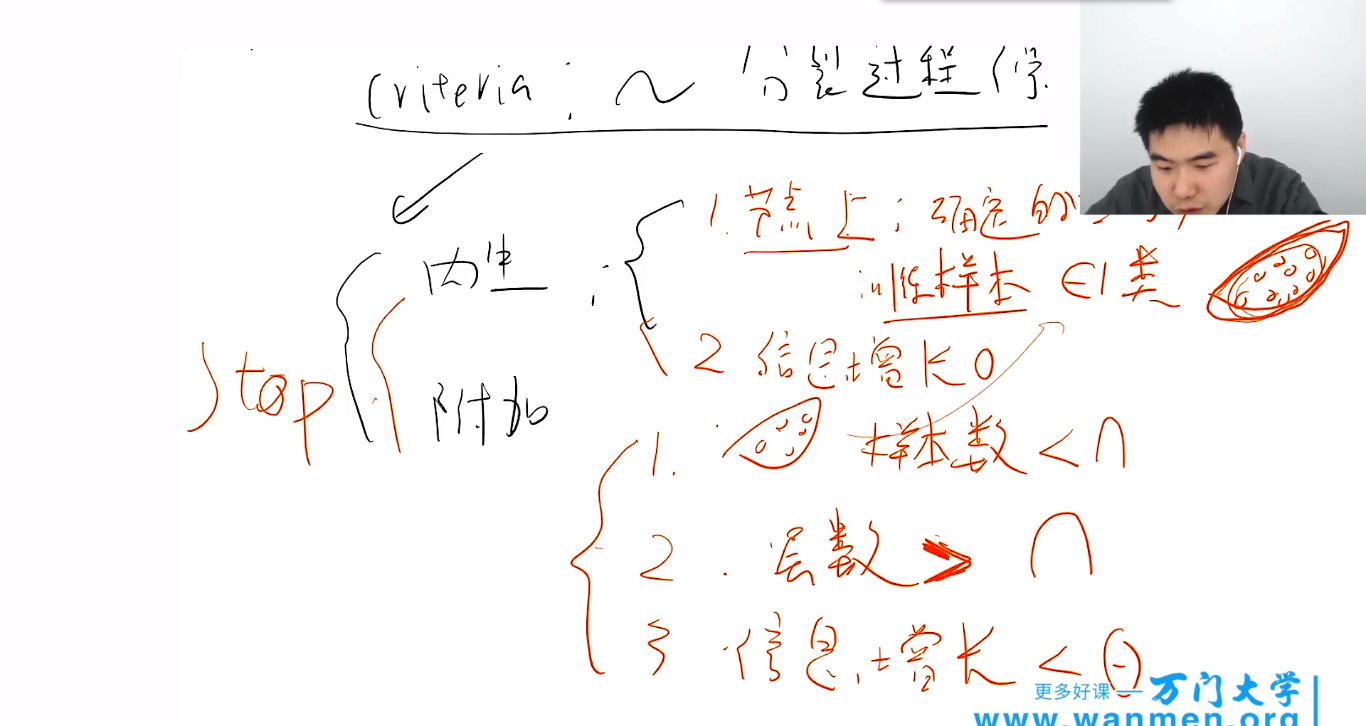 criteria: ~ 分裂过程停
1. 节点上; 确定的
内生 : 训练样本 ∈1类
Stop 2 信息增长0
附加
1. 样本数 < n
2. 层数 > n
3 信息增长 < θ
更多好课 — 万门大学
www.wanmen.org